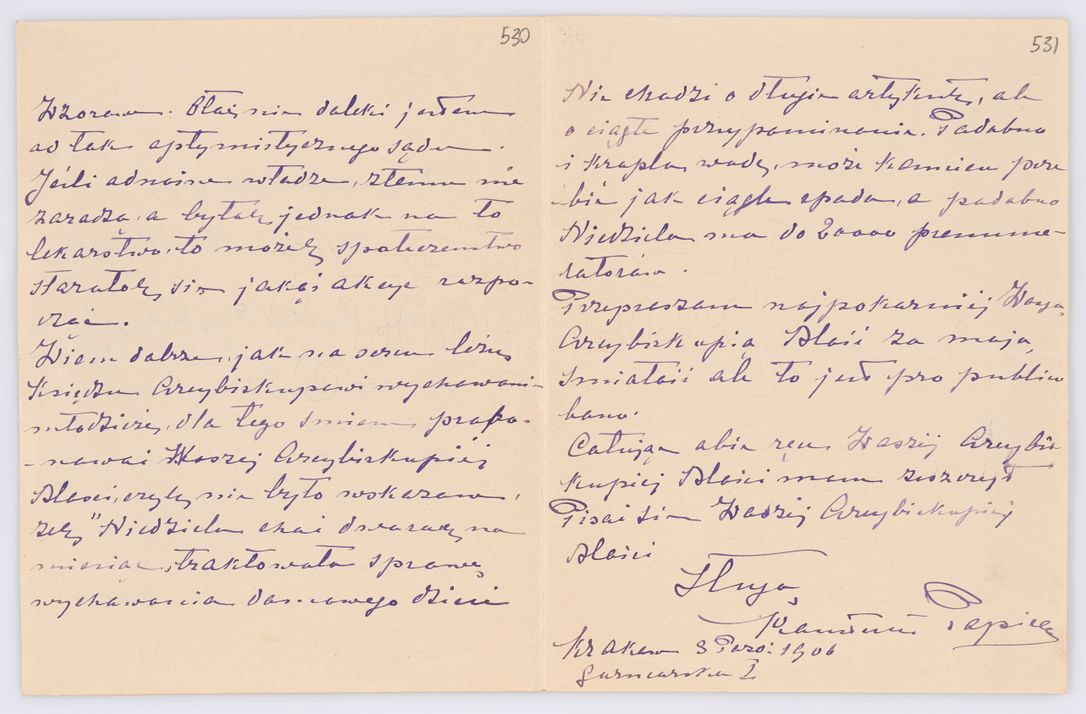 530
Wzorem. Otóż nie daleki jestem
od tak optymistycznego sądu.
Jeśli odnośne władze, złemu nie
zaradzą, a byłaby jednak na to
lekarstwo, to możeby społeczeństwo
starałoby się jakąś akcye rozpo-
cząć.
Wiem dobrze, jak na sercu leży
Księdzu Arcybiskupowi wychowani-
młodzieży, dla tego śmiem propo-
-nować Waszej Arcybiskupiej
Mości, czyby nie było wskazane,
żeby "Niedziela choć dwa razy na
miesiąc, traktowała sprawę
wychowania domowego dzieci
531
Nie chodzi o długie artykuły, ale
o ciągłe przypominanie. Podobno
i kropla wody, może kamień prze
-bić jak ciągle spada, a podobno
Niedziela ma do 20000 prenume-
ratorów.
Przepraszam najpokorniej Waszą
Arcybiskupią Mość za moją
śmiałość ale to jest pro publico
bono.
Całując obie ręce Waszej Arcybis-
kupiej Mości mam zaszczyt
Pisać się Waszej Arcybiskupiej
Mości
Sługa
Kraków 3 1906
Garncarska I